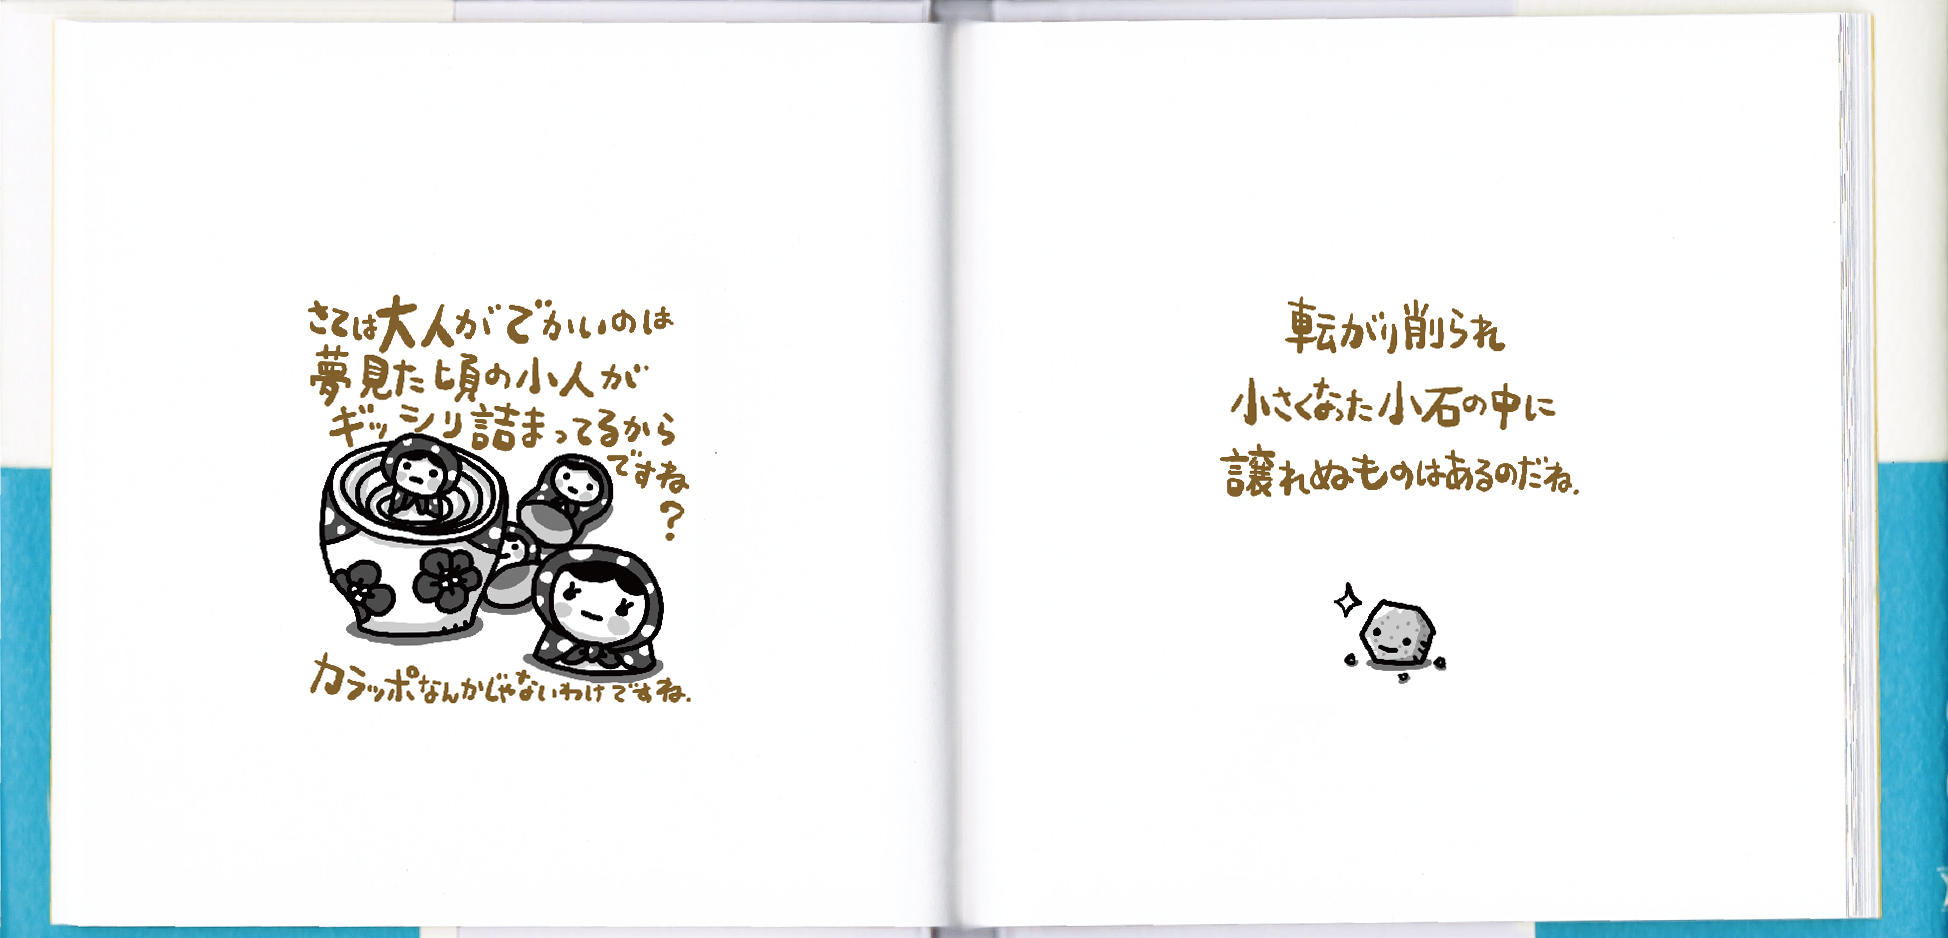 さては大人がでかいのは
夢見た頃の小人が
ギッシリ詰まってるから
ですね
?
カラッポなんかじゃないわけですね.
転がり削られ
小さくなった小石の中に
譲れぬものはあるのだね.